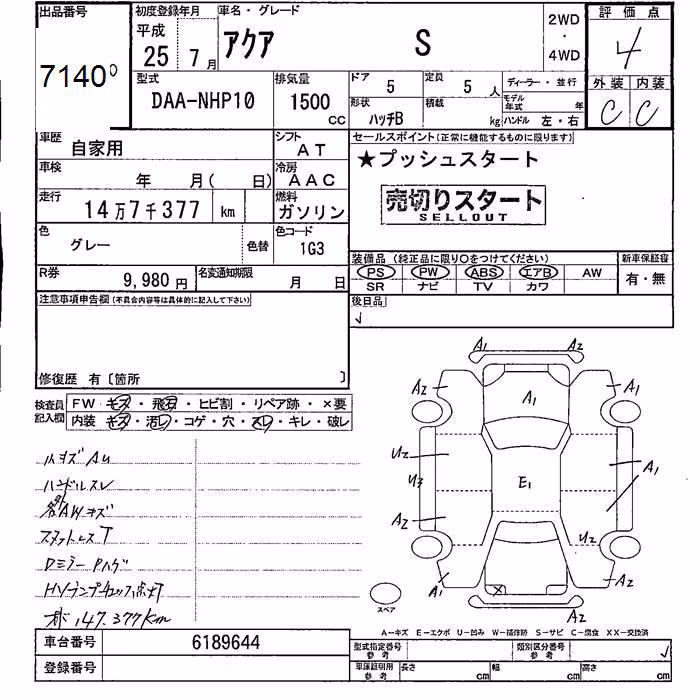 出品番号 初度登録年月 車名・グレード 2WD・4WD 評価点
7140 0 平成 25 7月 アクア S 4
型式 排気量 ドア 5 定員 5人 ディーラー・並行 外装 内装
DAA-NHP10 1500cc 形状 ハッチB 積載 kg モデル年式 年 ハンドル 左・右 C C
車歴 自家用 シフト AT
セールスポイント(正常に機能するものに限ります)
車検 年 月( 日) 冷房 AAC
★プッシュスタート
走行 14万7千377 km 燃料 ガソリン
売切りスタート
SELLOUT
色 グレー 色替 色コード 1G3
装備品(純正品に限り○をつけてください) 新車保証書
PS PW ABS エアB AW 有・無
SR ナビ TV カワ
R券 9,980円 名変通知期限 月 日
後日品
注意事項申告欄(不具合内容等は具体的に記入して下さい)
修復歴 有〔箇所 〕
検査員記入欄 FW キズ・飛石・ヒビ割・リペア跡・×要
内装 キズ・汚レ・コゲ・穴・スレ・キレ・破レ
小キズAU
ハンドルスレ
各AWキズ
スタットレスT
DミラーPハゲ
HVランプチェック点灯
オド147.377Km
A1 A2
A2 A1 A1
U2 U3 E1 A1
A2 U2
A1 X A2
A2
スペア
A-キズ E-エクボ U-凹み W-補修跡 S-サビ C-腐食 XX-交換済
車台番号 6189644
型式指定番号 参考 類別区分番号 参考
登録番号
車庫証明用 参考 長さ cm 幅 cm 高さ cm